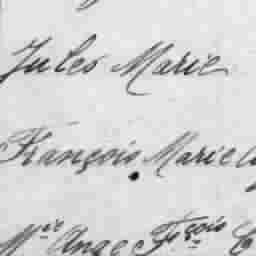 Jules Marie
François Marie
Mie Ange Fçois